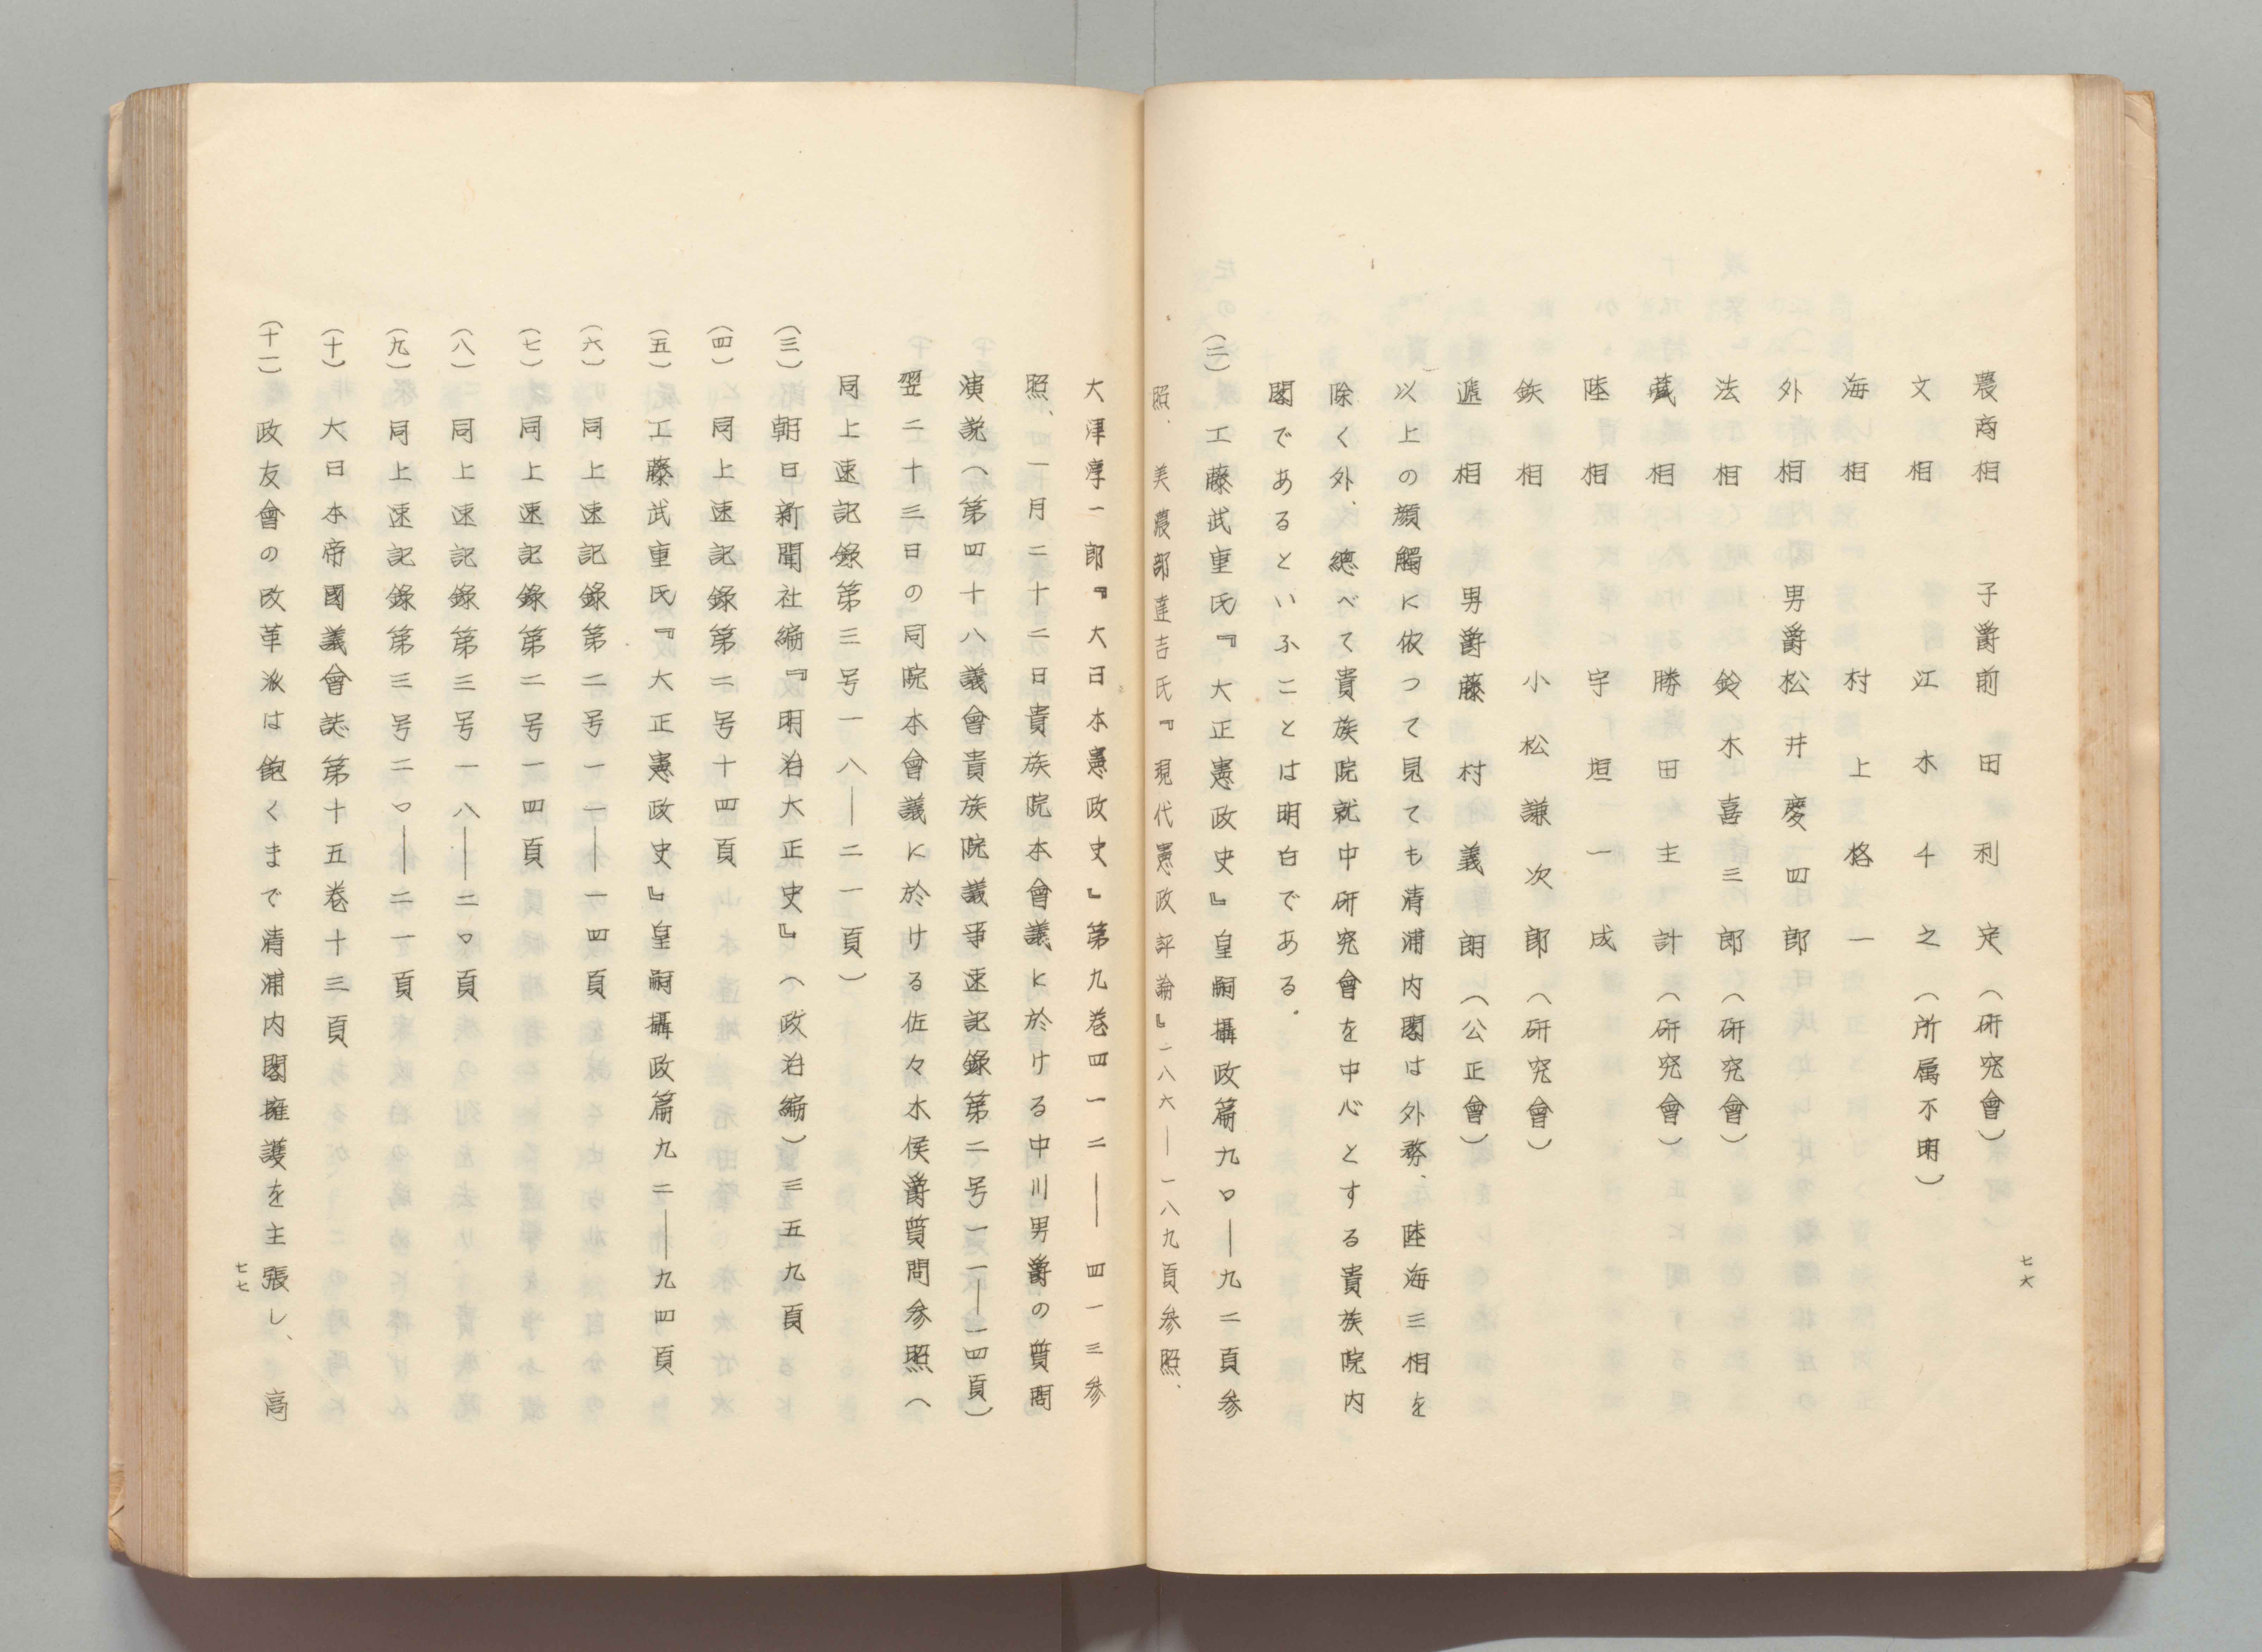 農商相 子爵前田利定（研究會）
文相 江木千之（所属不明）
海相 村上格一
外相 男爵松井慶四郎
法相 鈴木喜三郎（研究會）
蔵相 勝田主計（研究會）
陸相 宇垣一成
鉄相 小松謙次郎（研究會）
逓相 男爵藤村義朗（公正會）
以上の顔觸に依つて見ても清浦内閣は外務、陸海三相を
除く外、總べて貴族院就中研究會を中心とする貴族院内
閣であるといふことは明白である。
（二）工藤武重氏『大正憲政史』皇嗣攝政篇九〇―九二頁参
照、美濃部達吉氏『現代憲政評論』一八六―一八九頁参照、
七六
大津淳一郎『大日本憲政史』第九巻四一二――四一三参
照、一月二十二日貴族院本會議に於ける中川男爵の質問
演説（第四十八議會貴族院議事速記錄第二号一一―一四頁）
翌二十三日の同院本會議に於ける佐々木侯爵質問参照（
同上速記錄第三号一八―二一頁）
（三）朝日新聞社編『明治大正史』（政治編）三五九頁
（四）同上速記錄第二号十四頁
（五）工藤武重氏『大正憲政史』皇嗣攝政篇九二―九四頁
（六）同上速記錄第二号一一―一四頁
（七）同上速記錄第二号一四頁
（八）同上速記錄第三号一八―二〇頁
（九）同上速記錄第三号二〇―二一頁
（十）大日本帝國議會誌第十五巻十三頁
（十一）政友會の改革派は飽くまで清浦内閣擁護を主張し、高
七七